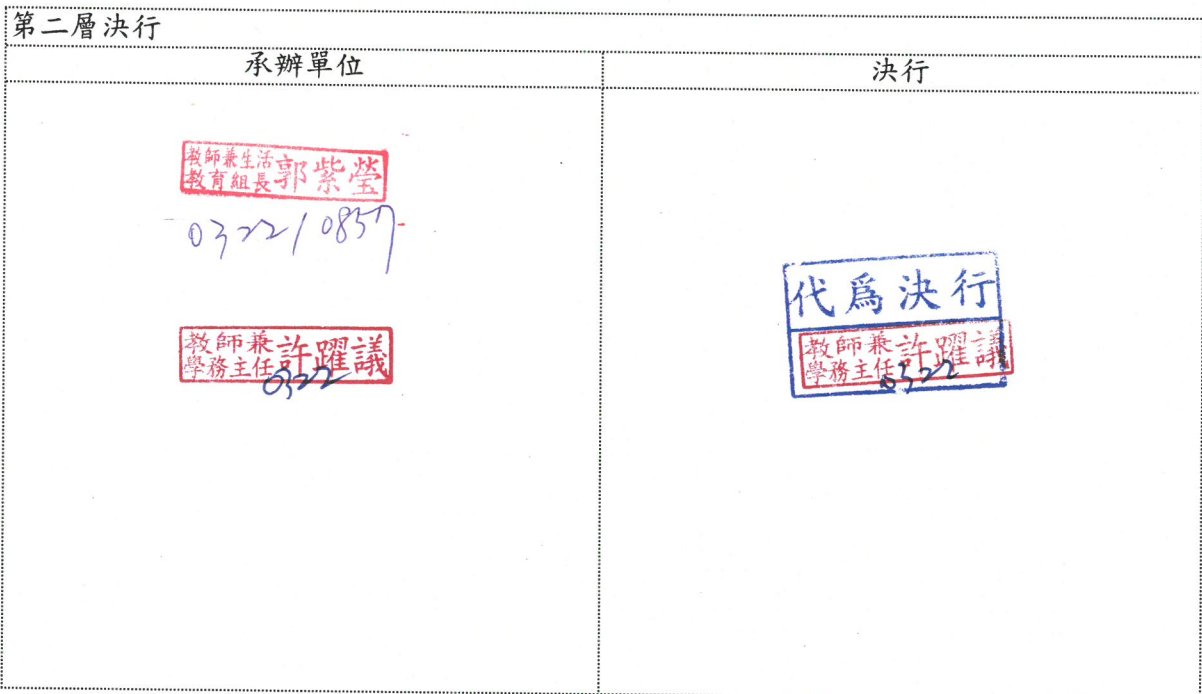 第二層決行
承辦單位
決行
教師兼生活
教育組長
郭紫瑩
0322/0857
教師兼
學務主任
許躍議
0322
代爲決行
教師兼
學務主任
許躍議
0322